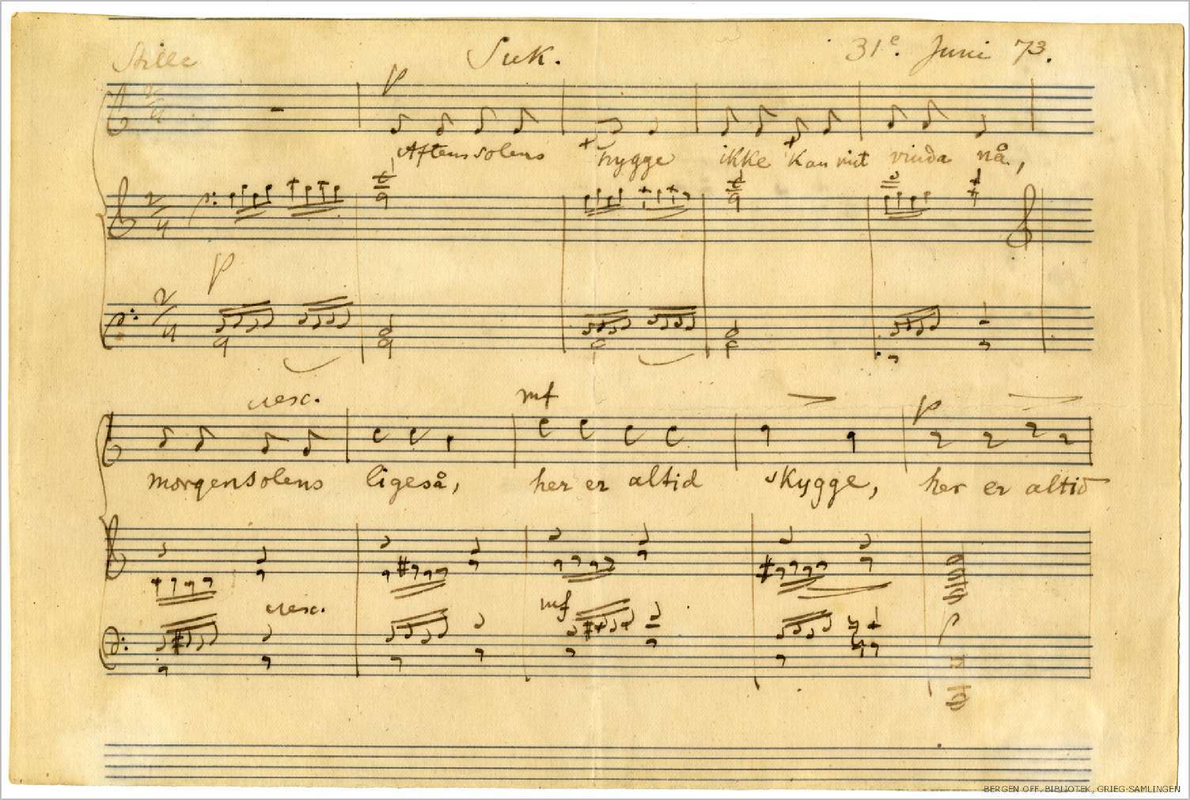 Stille Suk. 31ᵉ. Juni 73.
p
Aftensolens hygge ikke kan mit vindu nå,
p
cresc. mf p
morgensolens ligeså, her er altid skygge, her er altid
cresc. mf p
BERGEN OFF. BIBLIOTEK, GRIEG-SAMLINGEN